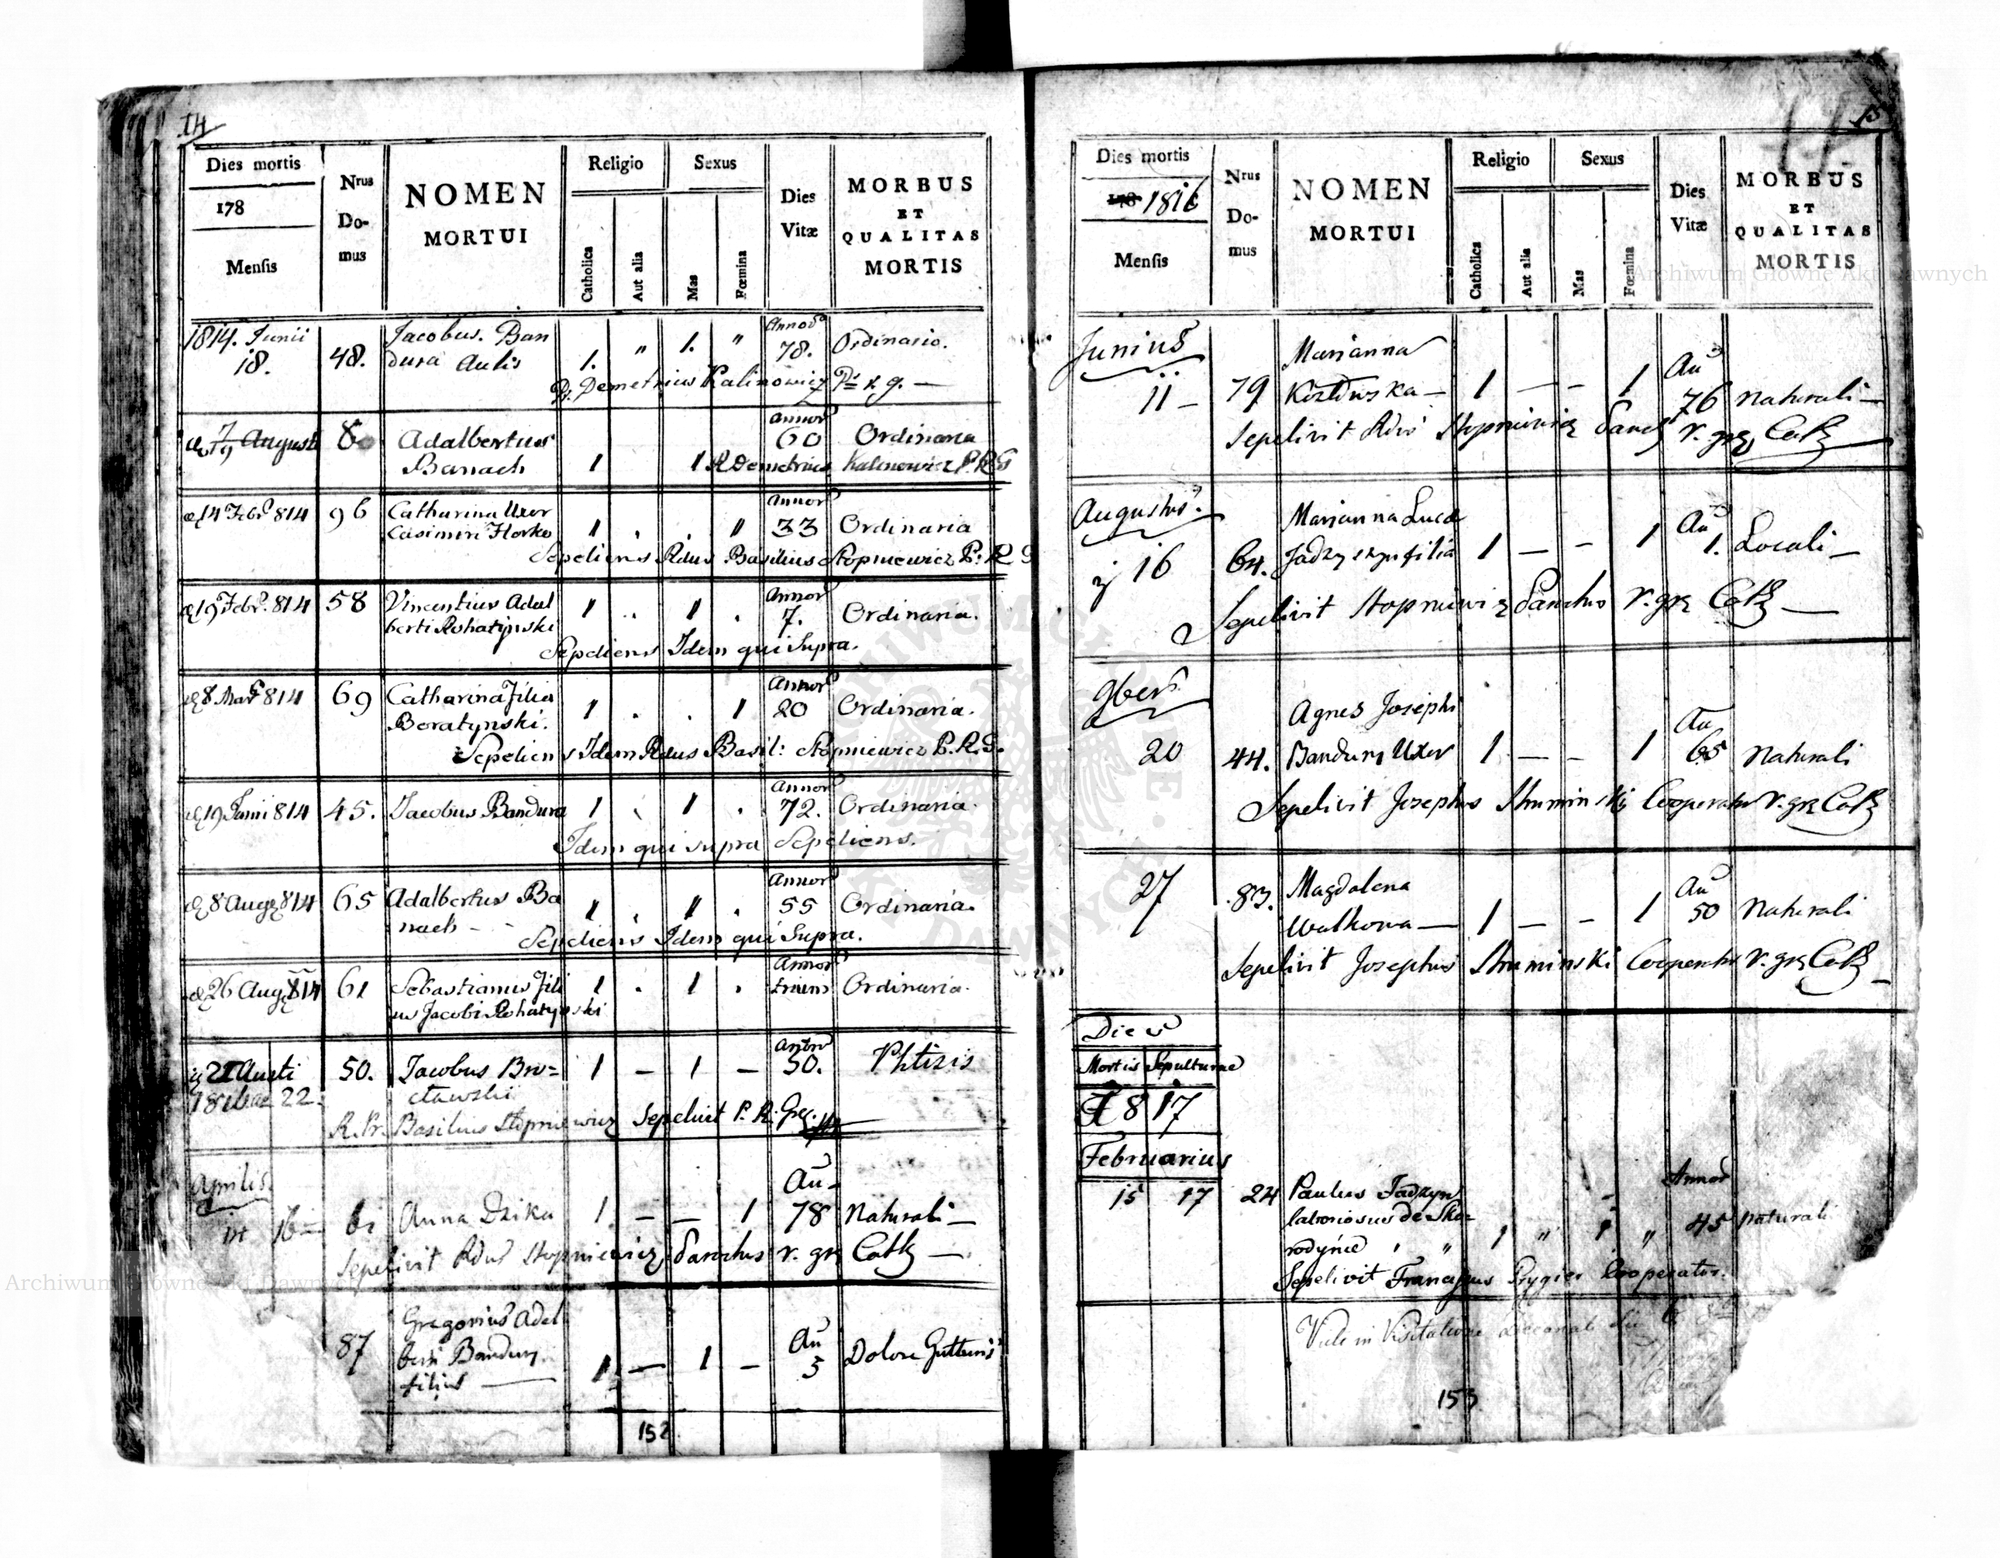 14
Dies mortis
178
Mensis
Nrus Do-mus
NOMEN
MORTUI
Religio
Catholica
Aut alia
Sexus
Mas
Fœmina
Dies
Vitæ
MORBUS
ET
QUALITAS
MORTIS
1814. Junii 18. 48. Jacobus. Ban
dura Aulis 1. " 1. " Annor 78. Ordinario.
Demetrius Kalinowicz
7 Augusti 80 Adalbertus
Banach 1 1 Annor 60 Ordinaria
R Demetrius Kalinowicz P.R.G
14 Febr 814 96 Catharina Uxor
Casimiri Horko 1 . . 1 Annor 33 Ordinaria
Sepeliens Rdus Basilius Stopniewicz P. R. G
19 Febr. 814 58 Vincentius Adal
berti Rohatynski 1 . 1 . Annor 7. Ordinaria.
Sepeliens Idem qui Supra.
8 Mar 814 69 Catharina Filia
Boratynski. 1 . . 1 Annor 20 Ordinaria.
Sepeliens Idem Rdus Basil: Stopniewicz P. R. G.
19 Junii 814 45. Jacobus Bandura 1 . 1 . Annor 72. Ordinaria.
Idem qui supra Sepeliens.
8 Aug 814 65 Adalbertus Ba
nach - - 1 . 1 . Annor 55 Ordinaria.
Sepeliens Idem qui Supra.
26 Aug 814 61 Sebastianus Fili
us Jacobi Rohatynski 1 . 1 . Annor trium Ordinaria.
22. 50. Jacobus Bro=
1 - 1 - 50. Phtisis
R. Pr. Basilius Stopniewicz Sepelivit P. R. Gr.
Aprilis
16 61 Anna Dzika 1 - - 1 An 78 Naturali -
Sepelivit Rdus Stopniewicz Parochus r. gr Cath -
87 Gregorius Adal
berti Bandury
filius 1 - 1 - An 5 Dolore Gutturis
152
15
Dies mortis
178 1816
Mensis
Nrus Do-mus
NOMEN
MORTUI
Religio
Catholica
Aut alia
Sexus
Mas
Fœmina
Dies
Vitæ
MORBUS
ET
QUALITAS
MORTIS
Junius
11 - 79 Marianna
Kozłowska - 1 - - 1 An 76 Naturali -
Sepelivit Rdus Stopniewicz Paroch r. gr. Cath
Augustus.
16 64. Marianna Lucae
Jadzyszyn filia 1 - - 1 An 1. Locali -
Sepelivit Stopniewicz Parochus r. gr Cath -
9bers
20 44. Agnes Josephi
Bandury Uxor 1 - - 1 An 65 Naturali
Sepelivit Josephus Shuminski Cooperator r. gr Cath
27 83. Magdalena
Walkowa - 1 - - 1 An 50 Naturali
Sepelivit Josephus Shuminski Cooperator r. gr Cath -
Dies
Mortis Sepulturae
1817
Februarius
15 17 24 Paulus Jadzyn
laboriosus de Sko-
rodynce 1 " 1 " Annor 45 Naturali
Sepelivit Franciscus Prygier Cooperator.
Vidi in Visitatione Decanali
153
Archiwum Główne Akt Dawnych
Archiwum Główne Akt Dawnych
ARCHIWUM GŁÓWNE AKT DAWNYCH